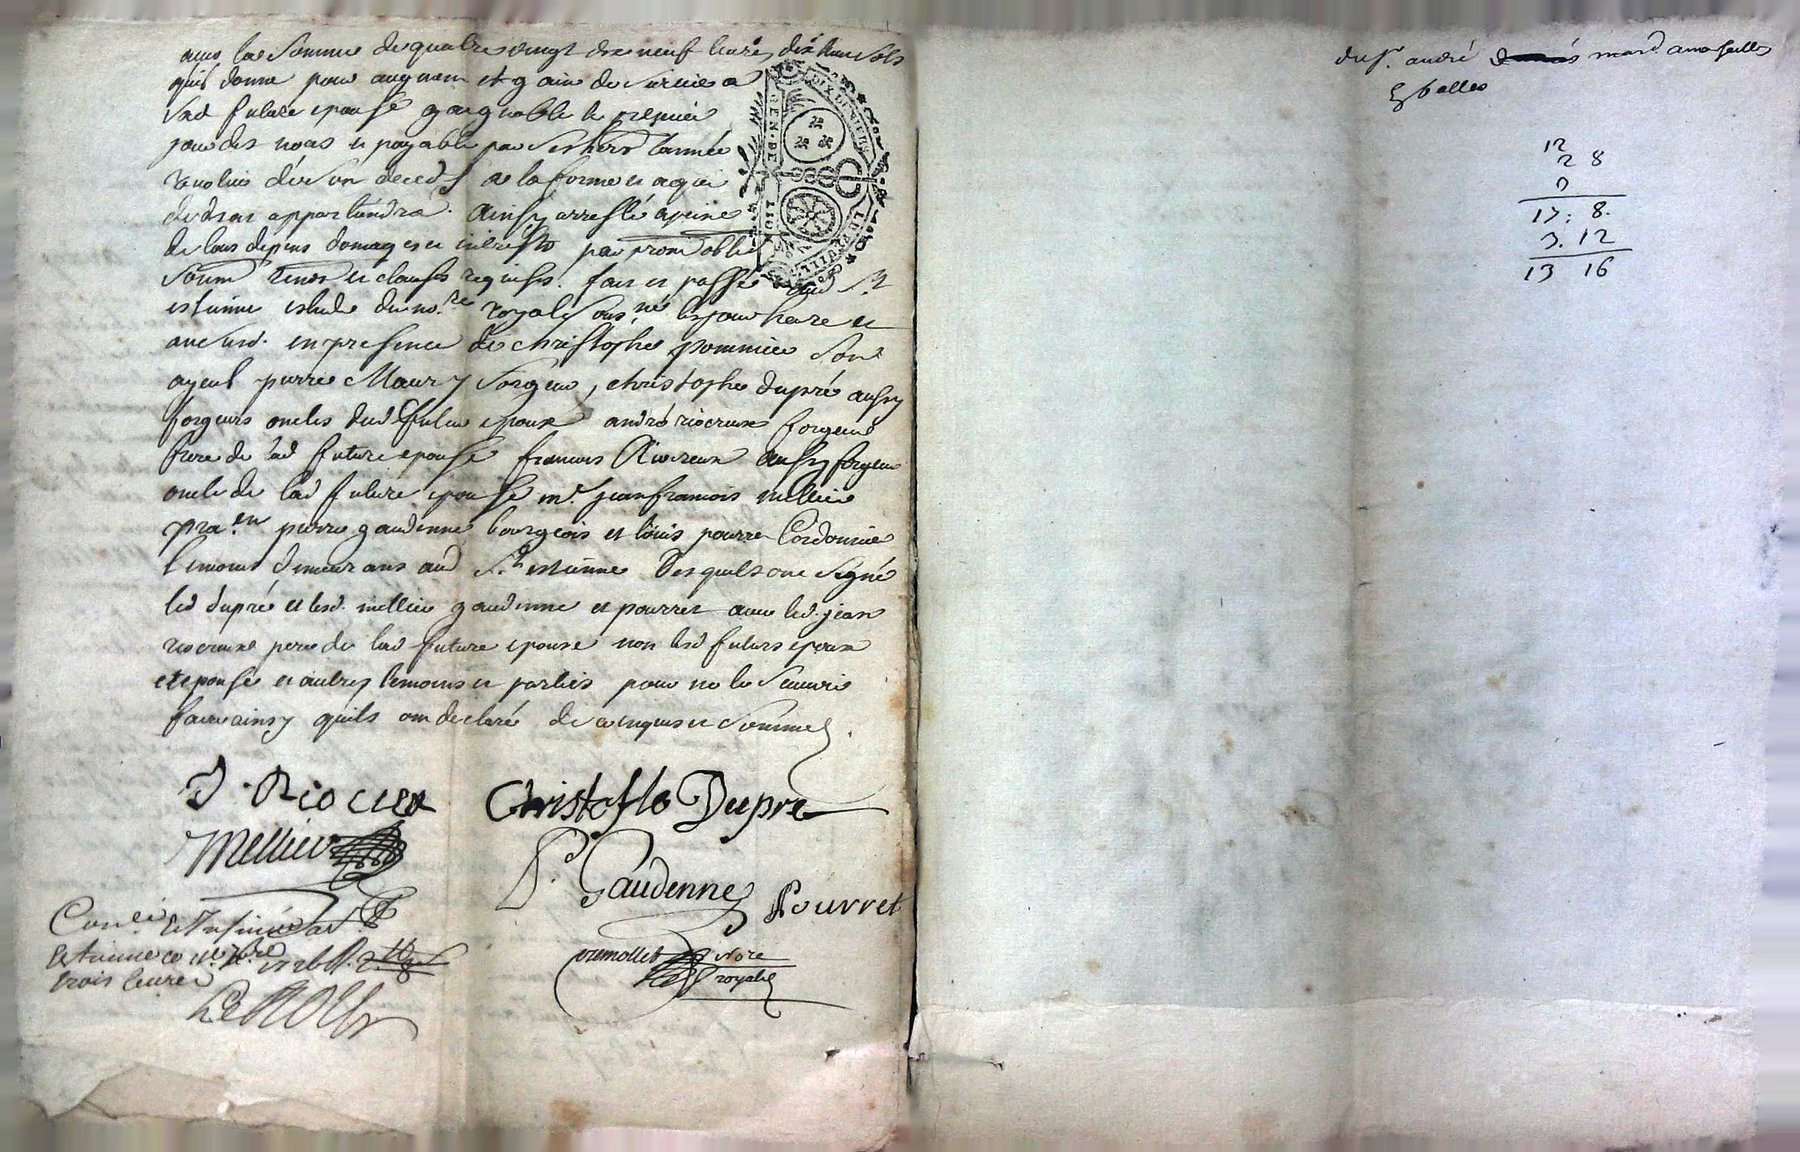 avec la somme de quatre vingt dix neuf livres dix huit sols
quil donne pour augmen et gain de survie a
lad future epouse gaignable le premier
jour des noces et payable par ses hers lannée
revolue de son deceds a la forme et a qui
de droit appartiendra. Ainsy arresté a peine
de tous depens domages et interests par prom oblig
soum renon et clauses requises. fait et passé aud St
estienne estude du no.re royal sous.né les jour heure et
an susd. en presence de christophe pommier son
ayeul pierre Maury forgeur, christophe dupré aussy
forgeurs oncles dud futur epoux andré riocreux forgeur
frere de lad future epouse francois Riocreux aussy forgeur
oncle de lad future epouse m.e jean francois mellier
pra.en pierre gaudenne bourgeois et louis pourret Cordonnier
temoins demeurans aud St estienne Desquels ont signé
led dupré et lesd. mellier gaudenne et pourret avec led. jean
riocreux pere de lad future epouse non lesd futurs epoux
et epouse et autres temoins et parties pour ne le scavoir
faire ainsy quils ont declaré de ce enquis et sommés.
J. Riocreux Christofle Dupré
Mellier
P. Gaudenne
Pourret
Con.lé et Insinué a St
Estienne ce
trois livres
nore
royal
du s.r andré mar.d a marseille
5 balles
12
2 8
13: 8.
3. 12
13 16
GEN. DE LION